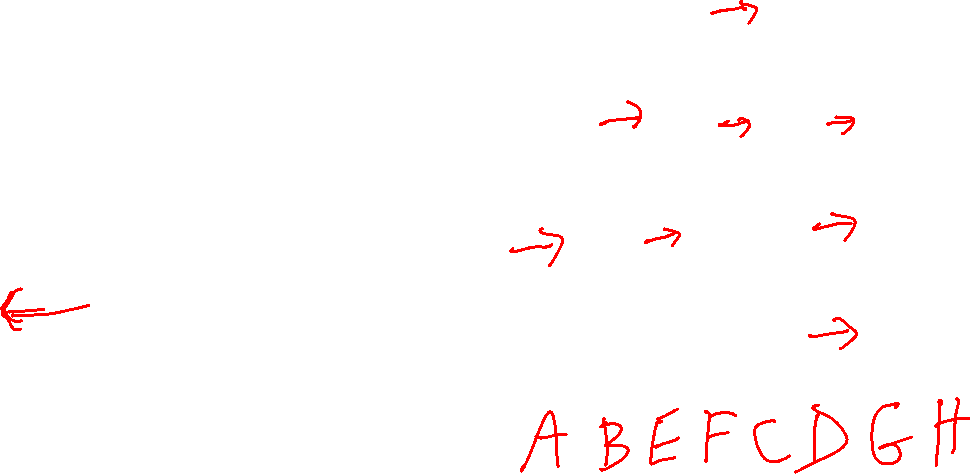 →
→ → →
→ → →
←
→
A B E F C D G H